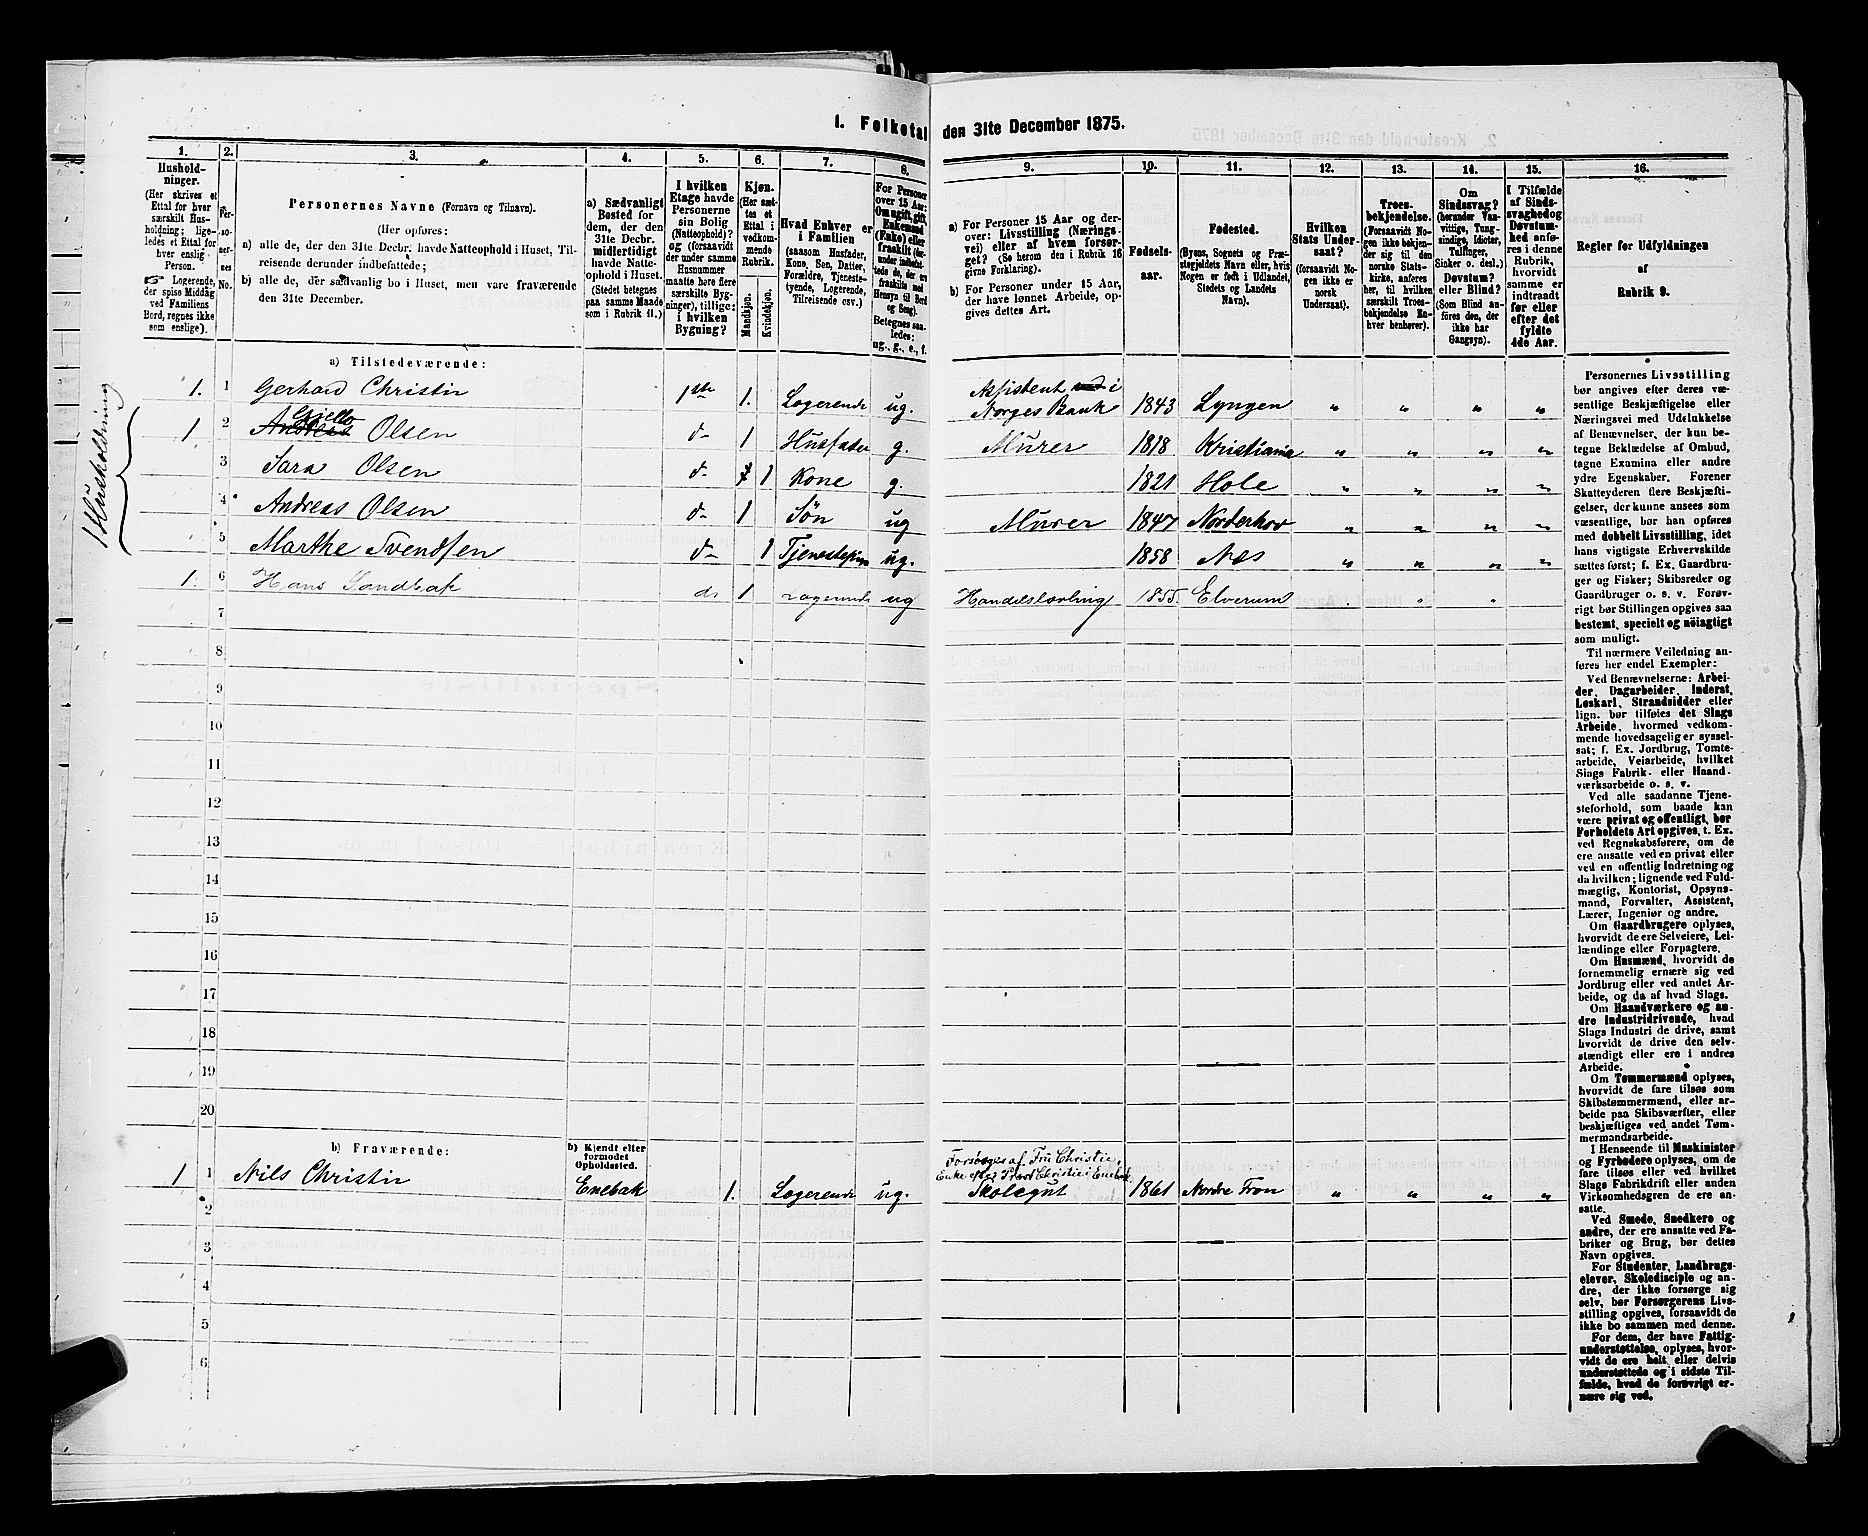 1. Folketal den 31te December 1875.
1. 2. 3. 4. 5. 6. 7. 8. 9. 10. 11. 12. 13. 14. 15. 16.
Hushold-
ninger.
(Her skrives et
Ettal for hver
særskilt Hus-
holdning; lige-
ledes et Ettal for
hver enslig
Person.
Logerende,
der spise Middag
ved Familiens
Bord, regnes ikke
som enslige).
Per-
so-
ner-
nes
No.
Personernes Navne (Fornavn og Tilnavn).
(Her opføres:
a) alle de, der den 31te Decbr. havde Natteophold i Huset, Til-
reisende derunder indbefattede;
b) alle de, der sædvanlig bo i Huset, men vare fraværende
den 31te December.
a) Sædvanligt
Bosted for
dem, der den
31te Decbr.
midlertidigt
havde Natte-
ophold i Huset.
(Stedet betegnes
paa samme Maade
som i Rubrik 11.)
I hvilken
Etage havde
Personerne
sin Bolig
(Natteophold)?
og (forsaavidt
der under samme
Husnummer
maatte høre flere
særskilte Byg-
ninger), tillige:
i hvilken
Bygning?
Kjøn.
(Her sæt-
tes et
Ettal i
vedkom-
mende
Rubrik.
Mandkjøn.
Kvindekjøn.
Hvad Enhver er
i Familien
(saasom Husfader,
Kone, Søn, Datter,
Forældre, Tjeneste-
tyende, Logerende,
Tilreisende osv.)
For Personer
over 15 Aar:
Om ugift, gift,
Enkemand
(Enke) eller
fraskilt (her-
under indbefat-
tede de, der ere
fraskilte med
Hensyn til Bord
og Seng).
Betegnes saa-
ledes:
ug., g., e., f.
a) For Personer 15 Aar og der-
over: Livsstilling (Nærings-
vei) eller af hvem forsør-
get? (Se herom den i Rubrik 16
givne Forklaring).
b) For Personer under 15 Aar,
der have lønnet Arbeide, op-
gives dettes Art.
Fødsels-
aar.
Fødested.
(Byens, Sognets og Præ-
stegjeldets Navn eller, hvis
Nogen er født i Udlandet,
Stedets og Landets
Navn).
Hvilken
Stats Under-
saat?
(forsaavidt No-
gen ikke er
norsk
Undersaat).
Troes-
bekjendelse.
(Forsaavidt No-
gen ikke bekjen-
der sig til den
norske Stats-
kirke, anføres
her, til hvilken
særskilt Troes-
bekjendelse En-
hver henhører).
Om
Sindssvag?
(herunder Van-
vittige, Tung-
sindige, Idioter,
Tullinger,
Sinker o. desl.)
Døvstum?
eller Blind?
(Som Blind an-
føres den, der
ikke har
Gangsyn).
I Tilfælde
af Sinds-
svaghed og
Døvstum-
hed anfø-
res i denne
Rubrik,
hvorvidt
samme er
indtraadt
før eller
efter det
fyldte
4de Aar.
Regler for Udfyldningen
af
Rubrik 9.
a) Tilstedeværende:
1 Husholdning
1. 1 Gerhard Christin 1ste 1. Logerende ug. Assistent i Norges Bank 1843 Lyngen " " " "
1 2 Andreas Gjello Olsen do 1 Husfader g. Murer 1818 Kristiania " " " "
3 Sara Olsen do 1 Kone g. 1821 Hole " " " "
4 Andreas Olsen do 1 Søn ug Murer 1847 Norderhov " " " "
5 Marthe Svendsen do 1 Tjenestepige ug. 1858 Næs " " " "
1. 6 Hans Sandbak do 1 Logerende ug Handelslærling 1855. Elverum " " "
7
8
9
10
11
12
13
14
15
16
17
18
19
20
b) Fraværende:
b) Kjendt eller
formodet
Opholdssted.
1 1 Nils Christin Enebak 1. Logerende ug. Forsørges af Fru Christie,
Enke efter Provst Christie i Enebak
Skolegut 1861 Nordre Fron " " " "
2
3
4
5
6
Personernes Livsstilling
bør angives efter deres væ-
sentlige Beskjæftigelse eller
Næringsvei med Udelukkelse
af Benævnelser, der kun be-
tegne Beklædelse af Ombud,
tagne Examina eller andre
ydre Egenskaber. Forener
Skatteyderen flere Beskjæfti-
gelser, der kunne ansees som
væsentlige, bør han opføres
med dobbelt Livsstilling, idet
hans vigtigste Erhvervskilde
sættes først; f. Ex. Gaardbru-
ger og Fisker; Skibsreder og
Gaardbruger o. s. v. Forøv-
rigt bør Stillingen opgives saa
bestemt, specielt og nøiagtigt
som muligt.
Til nærmere Veiledning an-
føres her endel Exempler:
Ved Benævnelserne: Arbei-
der, Dagarbeider, Inderst,
Løskarl, Strandsidder eller
lign. bør tilføies det Slags
Arbeide, hvormed vedkom-
mende hovedsagelig er syssel-
sat; f. Ex. Jordbrug, Tomte-
arbeide, Veiarbeide, hvilket
Slags Fabrik- eller Haand-
værksarbeide o. s. v.
Ved alle saadanne Tjene-
steforhold, som baade kan
være privat og offentligt, bør
Forholdets Art opgives, t. Ex.
ved Regnskabsførere, om de
ere ansatte ved en privat eller
ved en offentlig Indretning og
da hvilken; lignende ved Fuld-
mægtig, Kontorist, Opsyns-
mand, Forvalter, Assistent,
Lærer, Ingeniør og andre.
Om Gaardbrugere oplyses,
hvorvidt de ere Selveiere, Lei-
lændinge eller Forpagtere.
Om Husmænd, hvorvidt de
fornemmelig ernære sig ved
Jordbrug eller ved andet Ar-
beide, og da af hvad Slags.
Om Haandværkere og an-
dre Industridrivende, hvad
Slags Industri de drive, samt
hvorvidt de drive den selv-
stændigt eller ere i andres
Arbeide.
Om Tømmermænd oplyses,
hvorvidt de fare tilsøs som
Skibstømmermænd, eller ar-
beide paa Skibsværfter, eller
beskjæftiges ved andet Tøm-
mermandsarbeide.
I Henseende til Maskinister
og Fyrbødere oplyses, om de
fare tilsøs eller ved hvilket
Slags Fabrikdrift eller anden
Virksomhedsgren de ere an-
satte.
Ved Smede, Snedkere og
andre, der ere ansatte ved Fa-
briker og Brug, bør dettes
Navn opgives.
For Studenter, Landbrugs-
elever, Skoledisciple og an-
dre, der ikke forsørge sig
selv, bør Forsørgerens Livs-
stilling opgives, forsaavidt de
ikke bo sammen med denne.
For dem, der have Fattig-
understøttelse, oplyses, hvor-
vidt de ere helt eller delvis
understøttede og i sidste Til-
fælde, hvad de forøvrigt er-
nære sig ved.